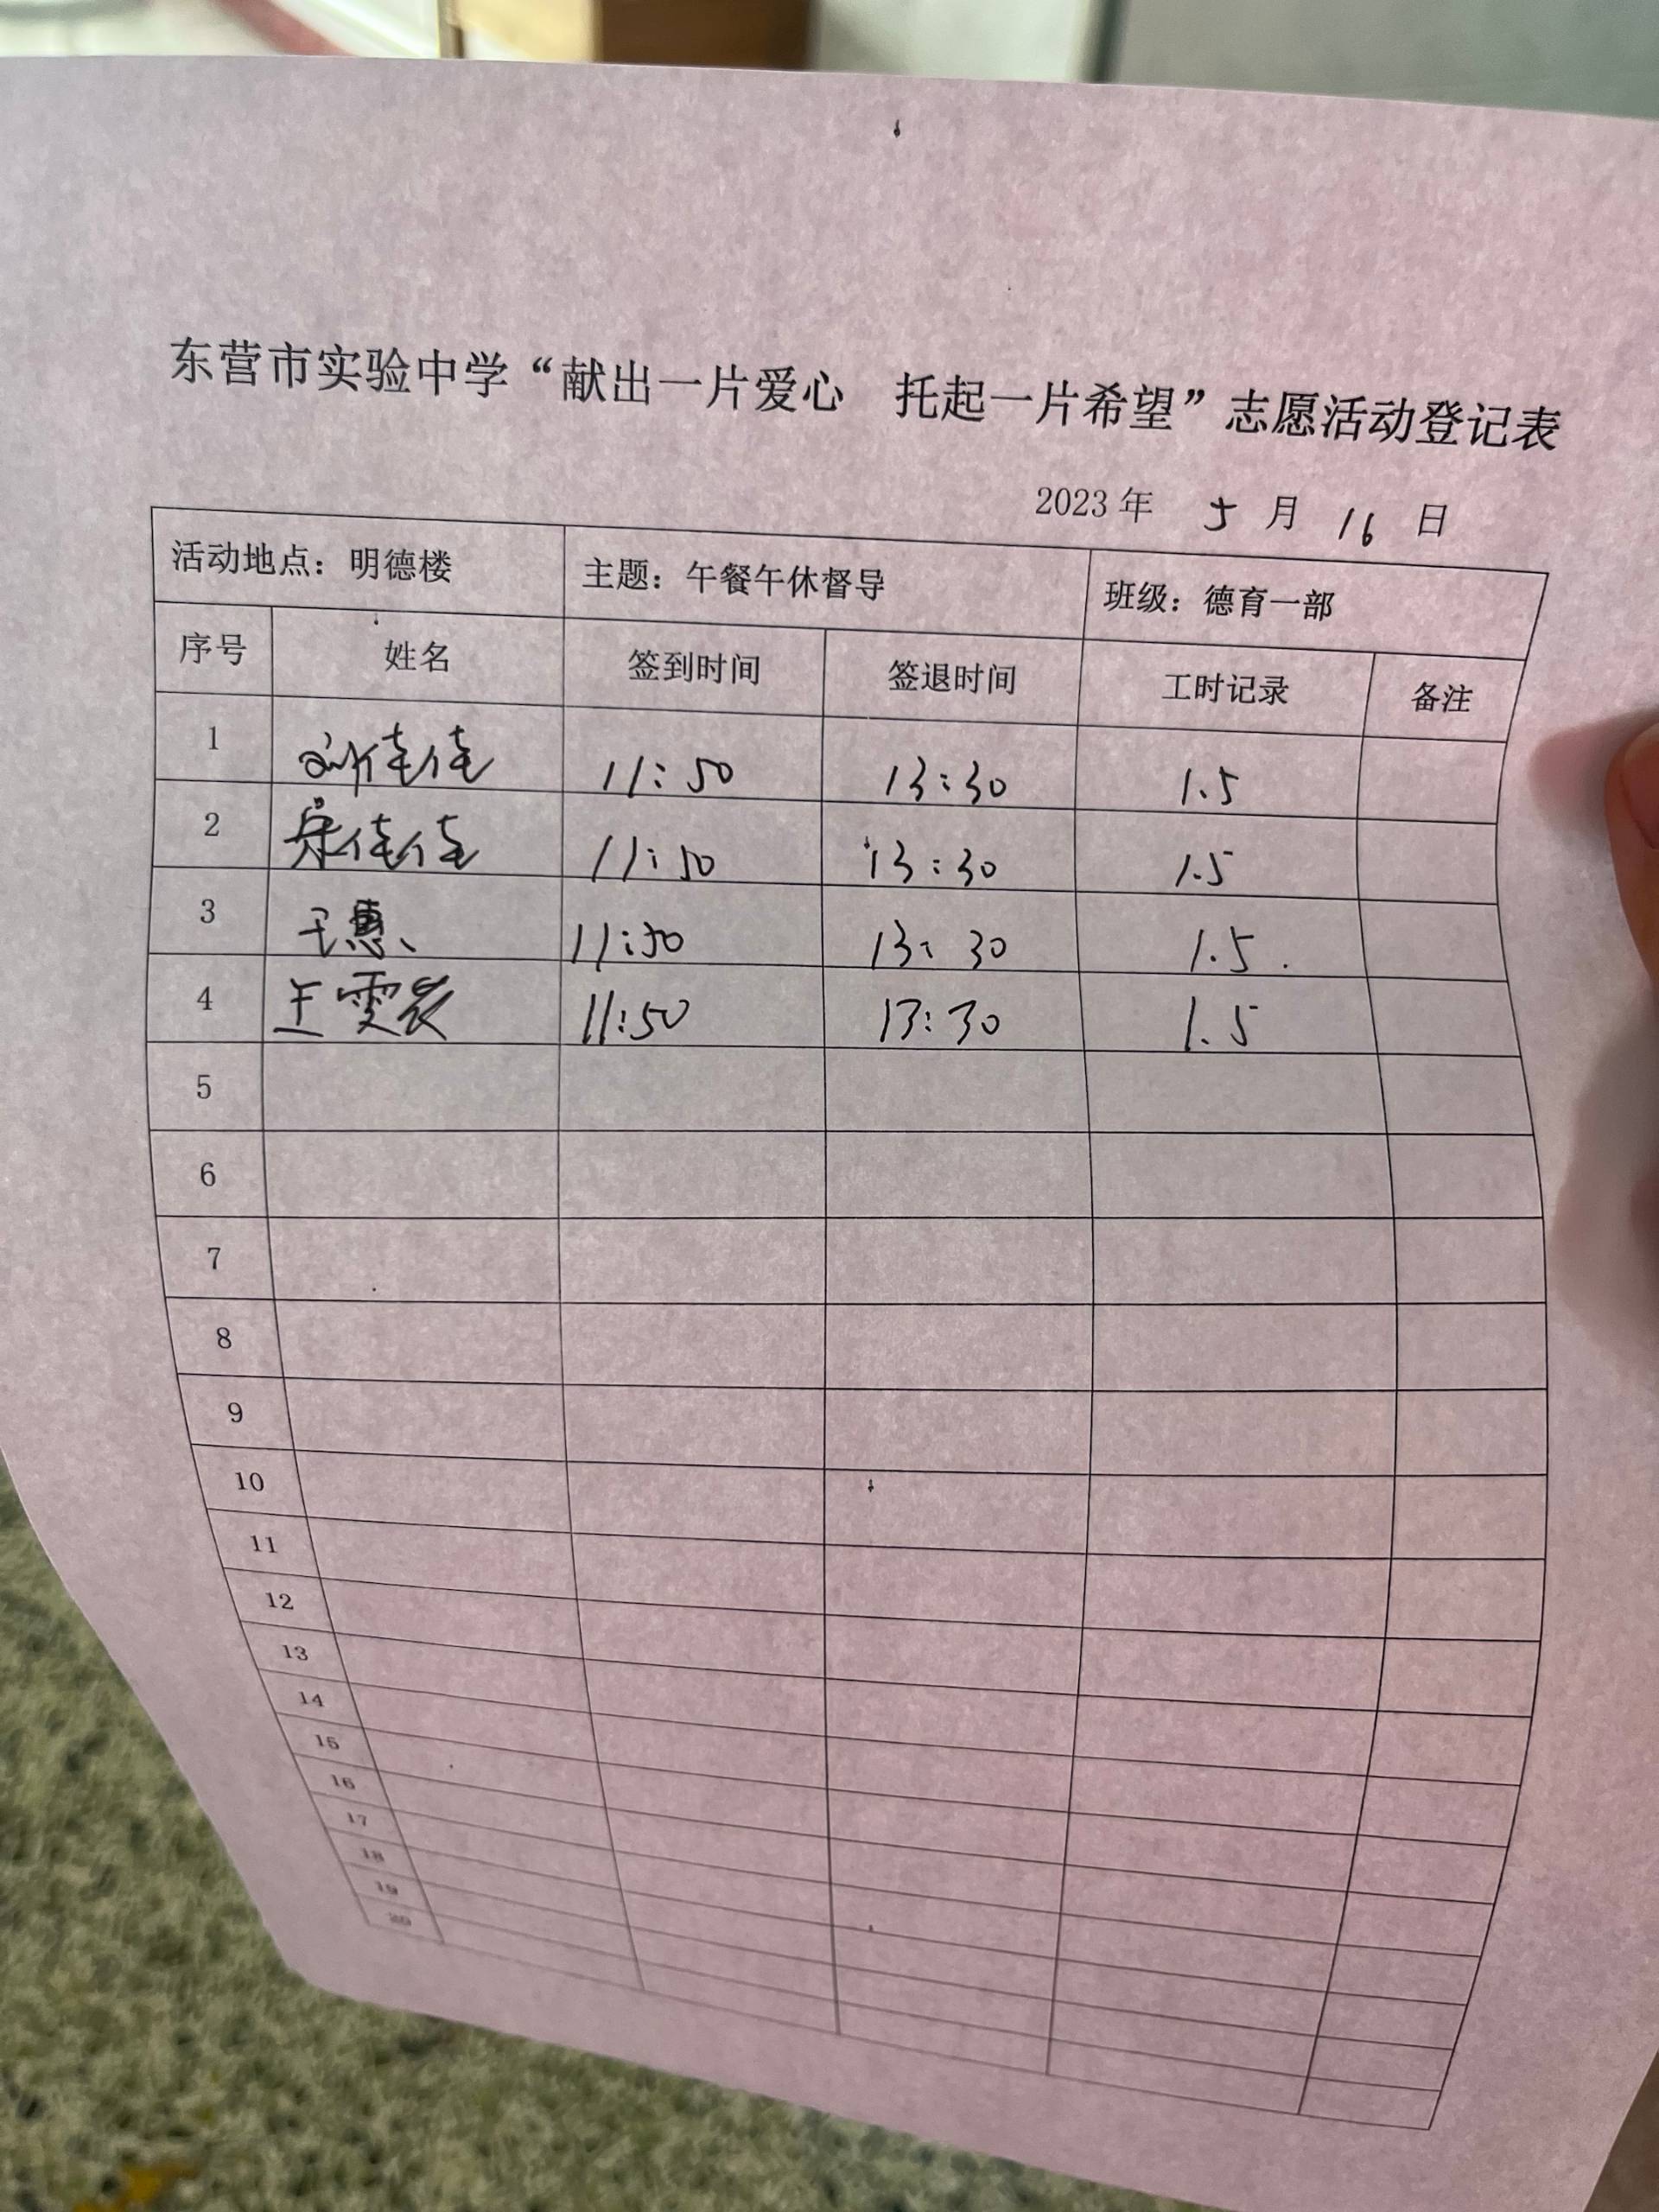 东营市实验中学“献出一片爱心 托起一片希望”志愿活动登记表
2023 年 5 月 16 日
活动地点：明德楼 主题：午餐午休督导 班级：德育一部
序号 姓名 签到时间 签退时间 工时记录 备注
1 刘佳佳 11:50 13:30 1.5
2 宋佳佳 11:50 13:30 1.5
3 惠 11:50 13:30 1.5
4 王雯 11:50 13:30 1.5
5
6
7
8
9
10
11
12
13
14
15
16
17
18
19
20